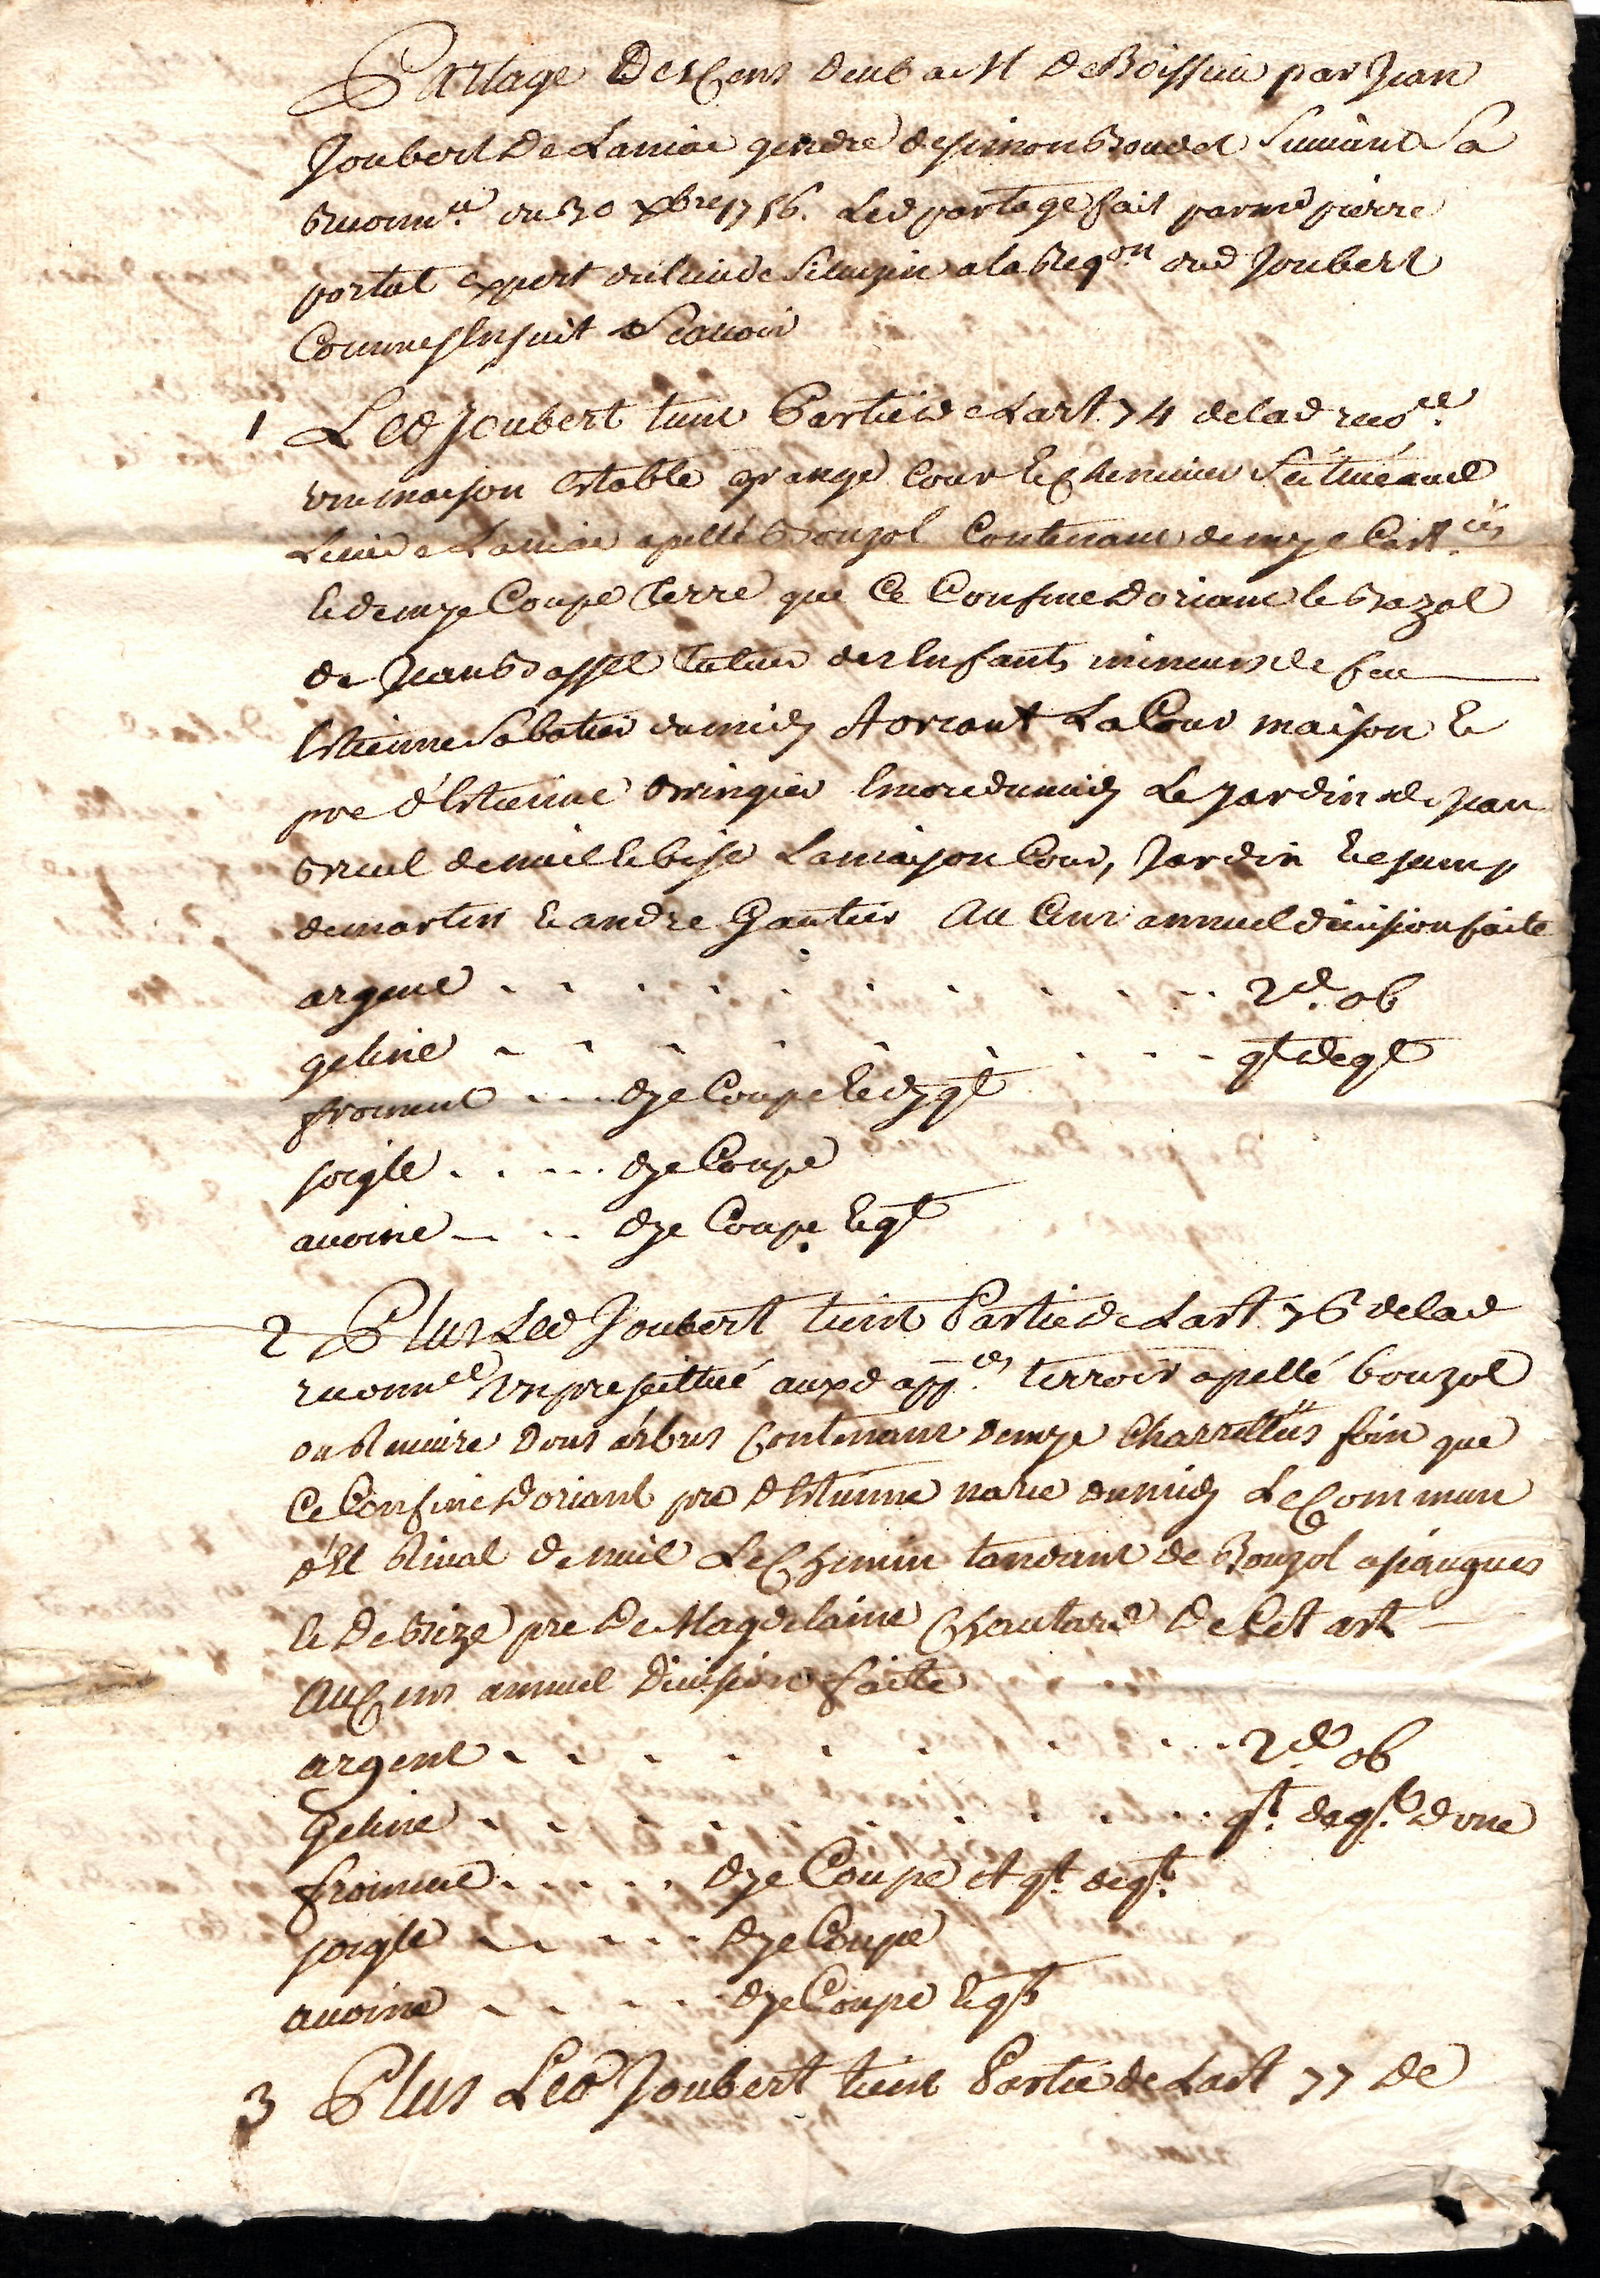 Partage Des Cens deub a Mr De Boissieu par Jean
Joubert De Laniac gendre de simon Boudet Suivant Sa
du 30 Xbre 1756. Led partage fait par me pierre
portal expert du lieu de a la Reqon dud Joubert
Comme sensuit Scavoir
1 Led Joubert tient Partie de Lart. 74 de lad
une maison estable grange Cour et Chemin Scitué aud
Lieu de Laniac apellé Bouzol Contenant demye
et demye Coupe terre que Ce Confine D'oriant le Sazal
de Jean Bassel tuteur des Enfants mineurs de feu
Estienne Sabatier du midy & oriant La Cour maison Et
pre d'Estienne Encore du midy Le Jardin de Jean
Breul de nuit et bise La maison Cour, Jardin Et
de martin Et andre Gautier Au Cens annuel division faite
argent . . . . . . . . . . 2d. ob
geline . . . . . . . . . qt de qt
froment . . . dye Coupe Et dy qt
soigle . . . . dye Coupe
avoine . . . dye Coupe Et qt
2 Plus Led Joubert tient Partie de Lart. 76 de lad
un pre scittué auxd appces terroir apellé bouzol
ou Riviere Dous arbres Contenant demye Charrettes foin que
Ce Confine D'oriant pre d'Estienne marie du midy Le Commun
de nuit Le Chemin tendant de Bouzol a
Et De bize pre De Magdelaine Chautard De Cet art
Au Cens annuel Division faite
argent . . . . . . . . . 2d. ob
Geline . . . . . . . . . . qt. de qt. d'une
froment . . . . . dye Coupe et qt. de qt.
soigle . . . . . dye Coupe
avoine . . . . dye Coupe Et qt
3 Plus Led Joubert tient Partie de Lart 77 De